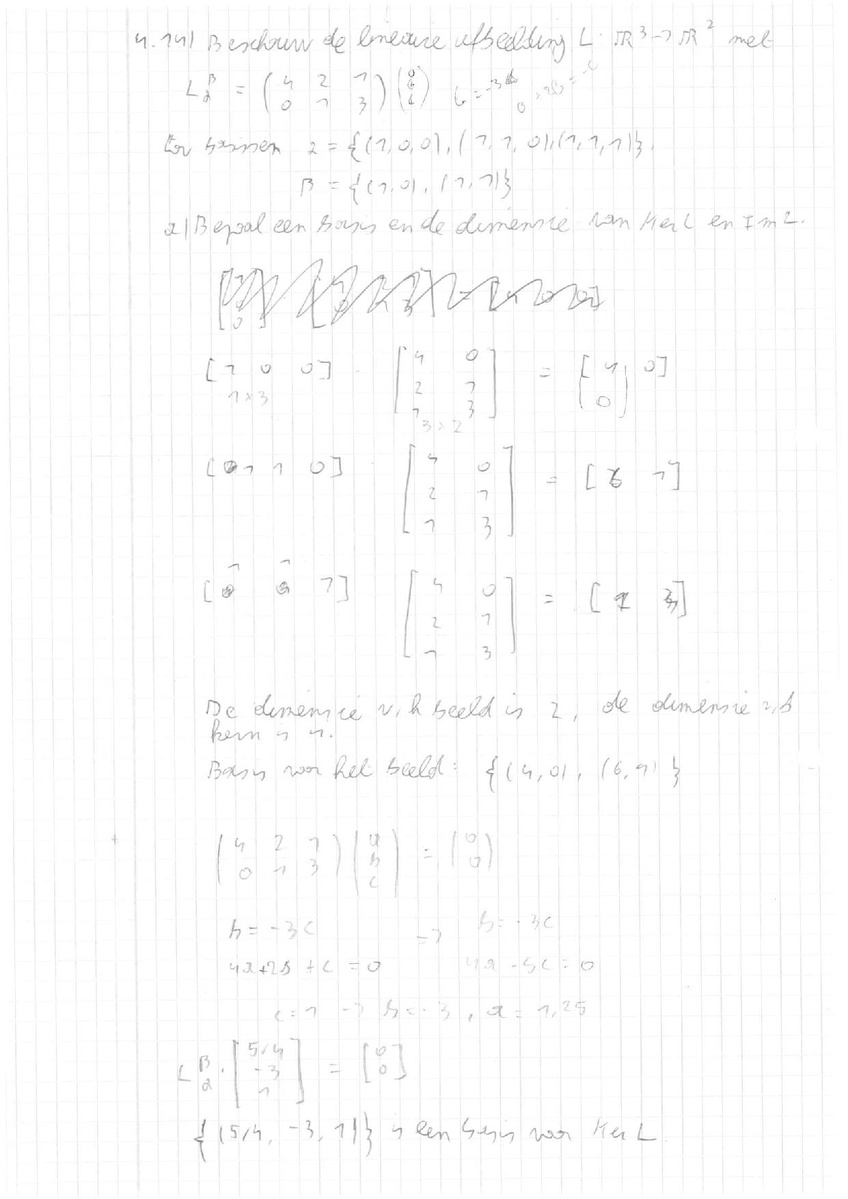 4.14) Beschouw de lineaire afbeelding L: ℝ³→ℝ² met
L_α^β = (4 2 1; 0 1 3)
tov basissen α = {(1,0,0), (1,1,0), (1,1,1)},
β = {(1,0), (1,1)}
a) Bepaal een basis en de dimensie van Ker L en Im L.
[1 0 0] · [4 0; 2 1; 1 3] = [4 0]
1×3 3×2
[1 1 0] [4 0; 2 1; 1 3] = [6 1]
[1 1 1] [4 0; 2 1; 1 3] =
De dimensie v,h beeld is 2, de dimensie v,d
kern is 1.
Basis voor het beeld: {(4,0), (6,1)}
(4 2 1; 0 1 3) (a; b; c) = (0; 0)
b = -3c → b = -3c
4a+2b+c = 0 4a-5c = 0
c = 1 → b = -3, a = 1,25
L_α^β · [5/4; -3; 1] = [0; 0]
{(5/4, -3, 1)} is een basis voor Ker L